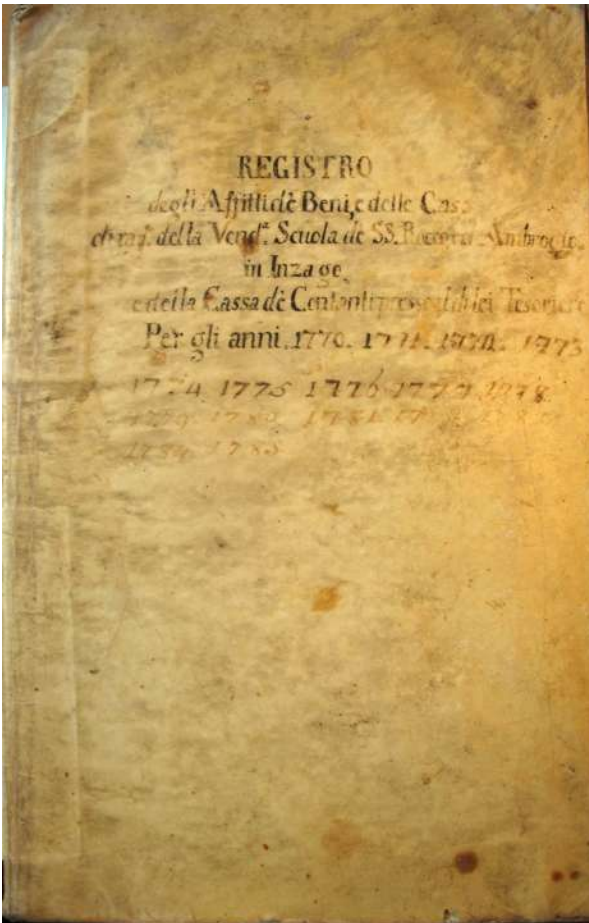 REGISTRO
degli Affitti dè Beni, e delle Case
di rag.e della Vend.a Scuola de SS. Rocco ed Ambrogio
in Inzago,
e della Cassa dè Contanti presso il di lei Tesoriere
Per gli anni. 1770. 1771. 1772. 1773
1774 1775 1776 1777 1778
1779 1780 1781
1784 1785